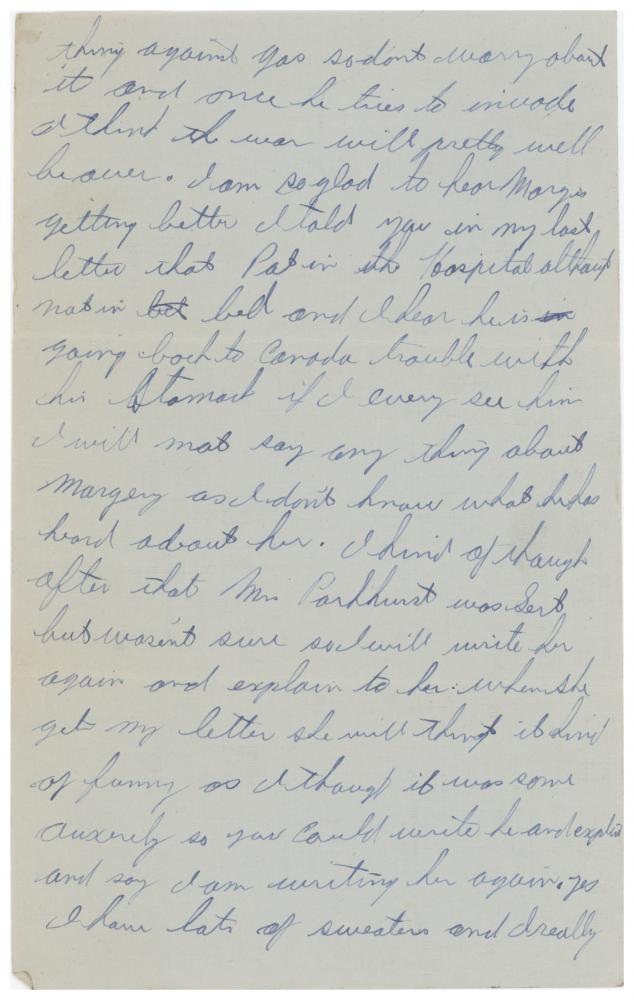 thing against gas so dont worry about
it and once he tries to invade
I think the war will pretty well
be over. I am so glad to hear Margs
getting better I told you in my last
letter that Pat in the Hospital although
not in bet bed and I hear he is in
going back to Canada trouble with
his Stomach if I every see him
I will not say any thing about
Margery as I don't know what he has
heard adout her. I kind of though
after that Mrs Parkhurst was Gert
but wasent sure so I will write her
again and explain to her. when she
gets my letter she will think it kind
of funny as I though it was some
auxerly so you could write he and explain
and say I am writing her again. yes
I have lots of sweaters and I really